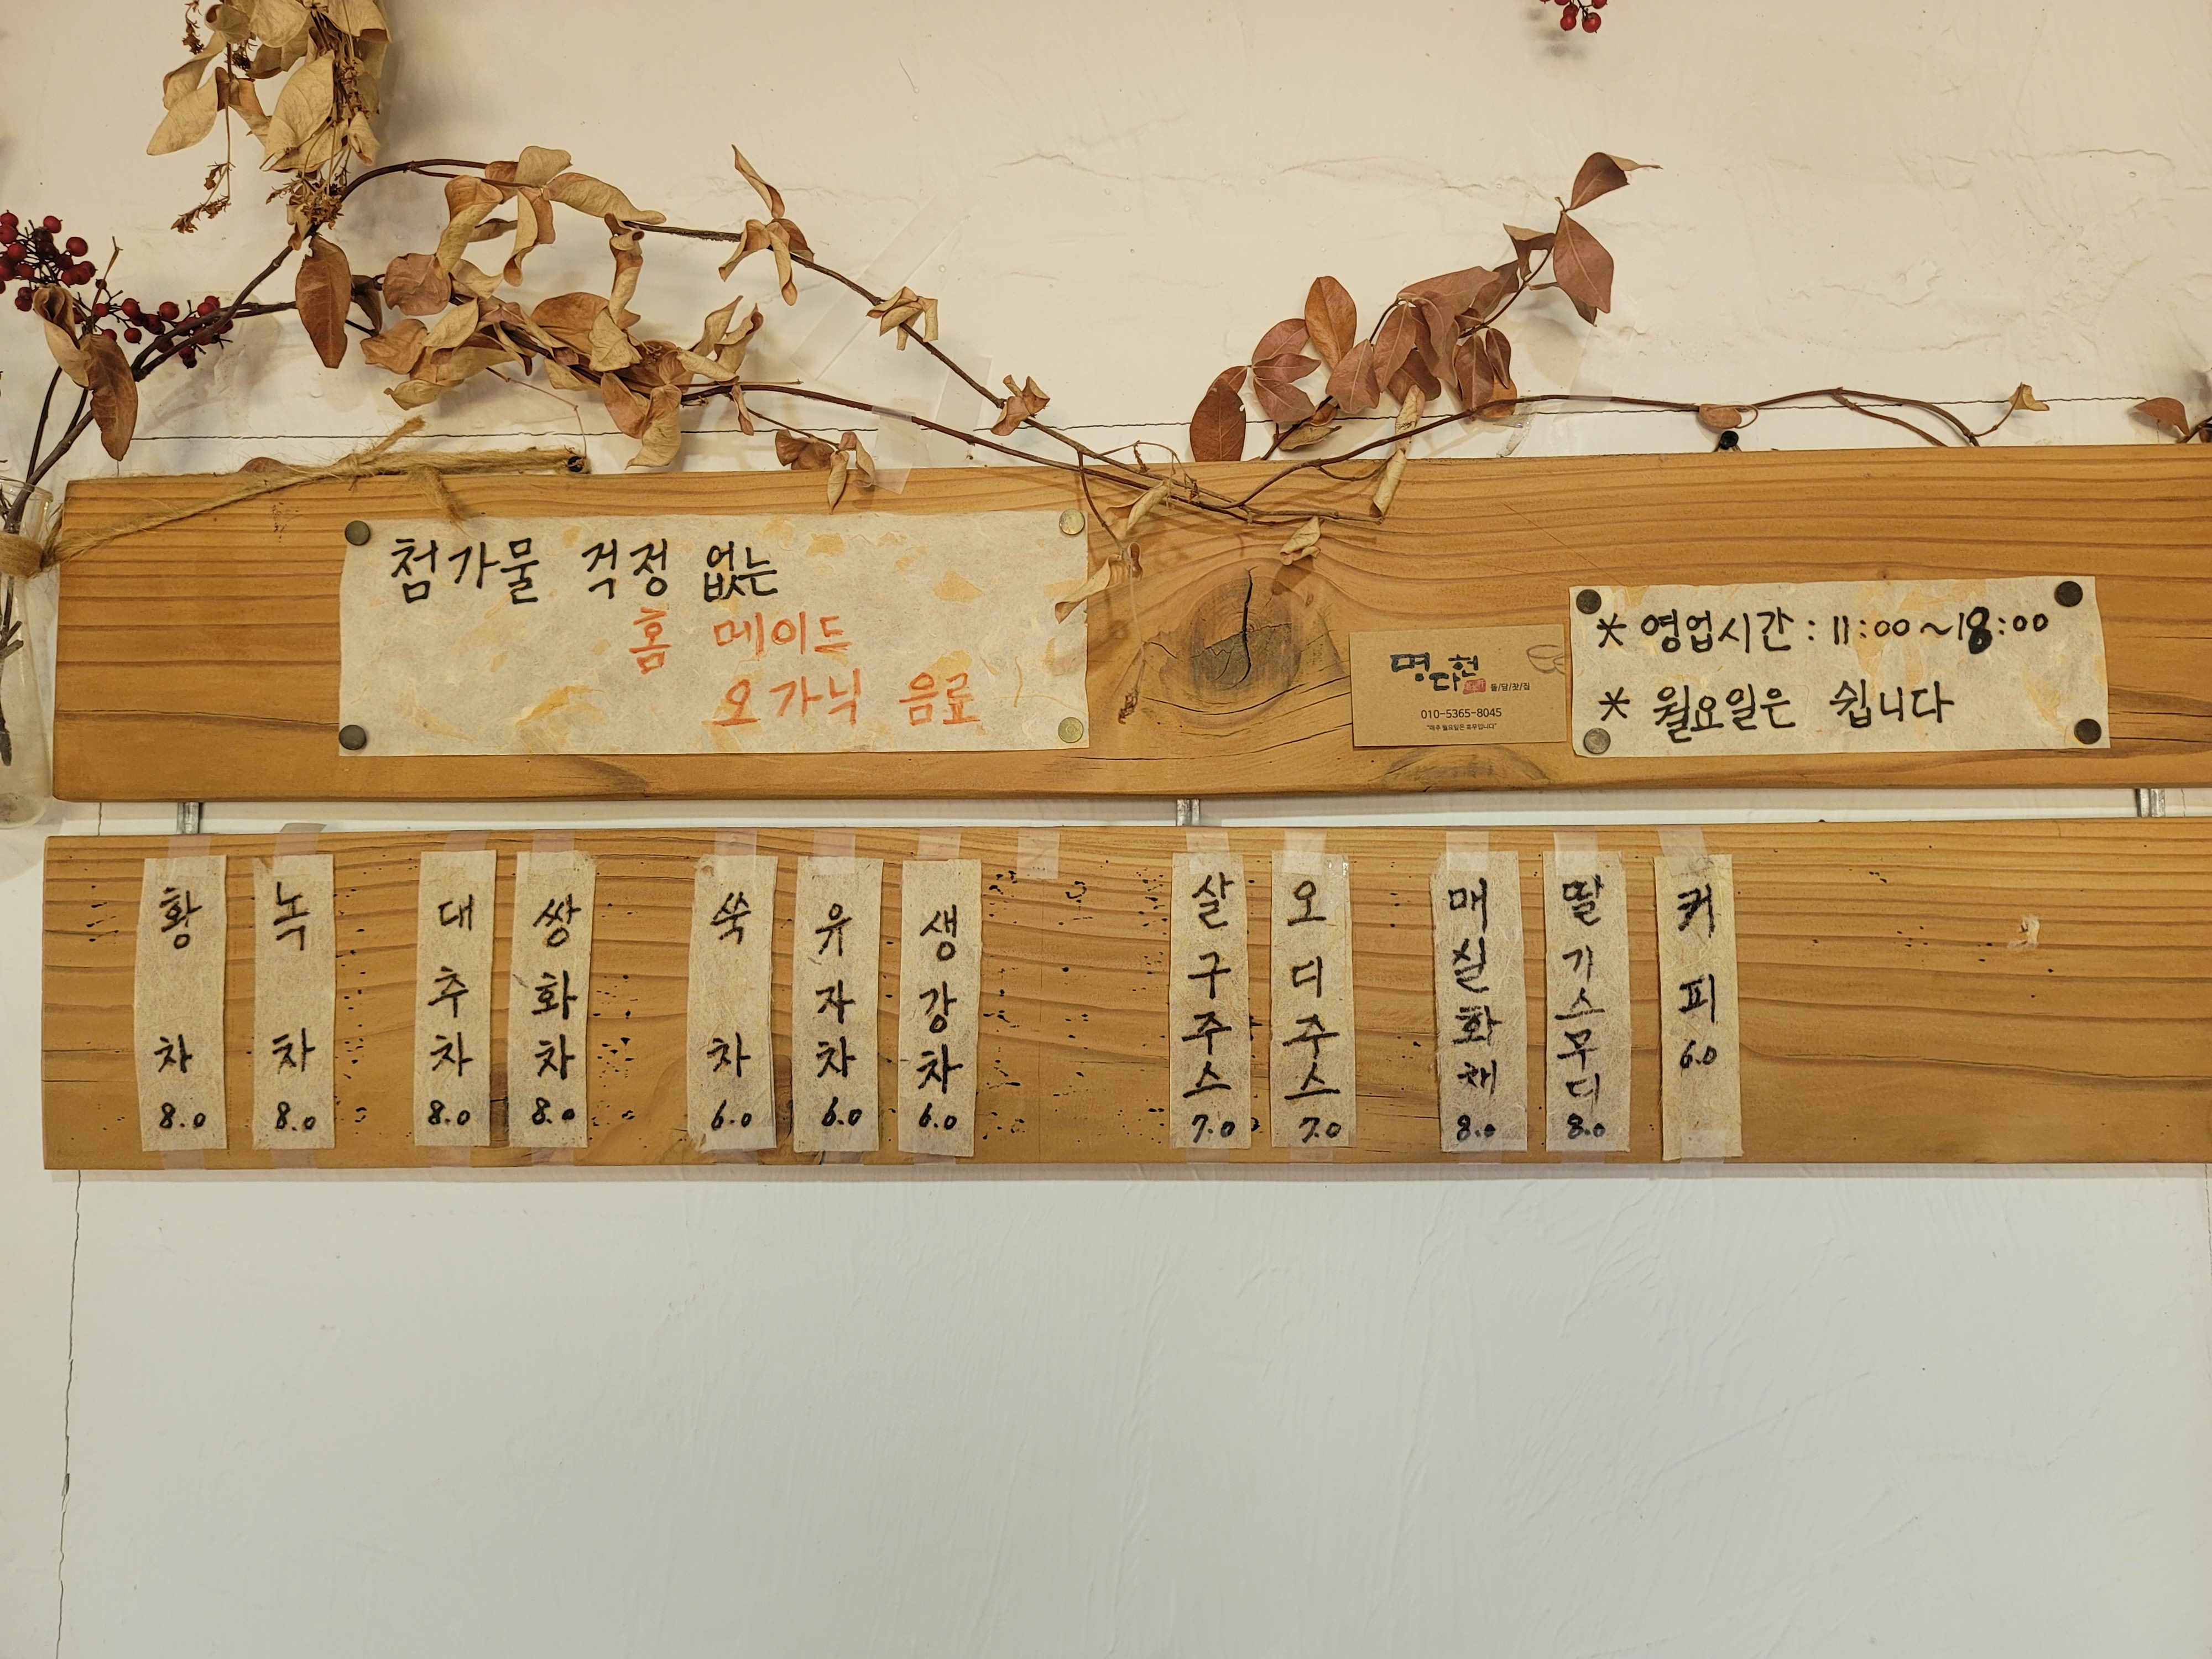 첨가물 걱정 없는
홈 메이드
오가닉 음료
명다헌
돌/담/찻/집
010-5365-8045
"매주 월요일은 휴무입니다"
* 영업시간 : 11:00 ~ 18:00
* 월요일은 쉽니다
황차 8.0
녹차 8.0
대추차 8.0
쌍화차 8.0
쑥차 6.0
유자차 6.0
생강차 6.0
살구주스 7.0
오디주스 7.0
매실화채 8.0
딸기스무디 8.0
커피 6.0